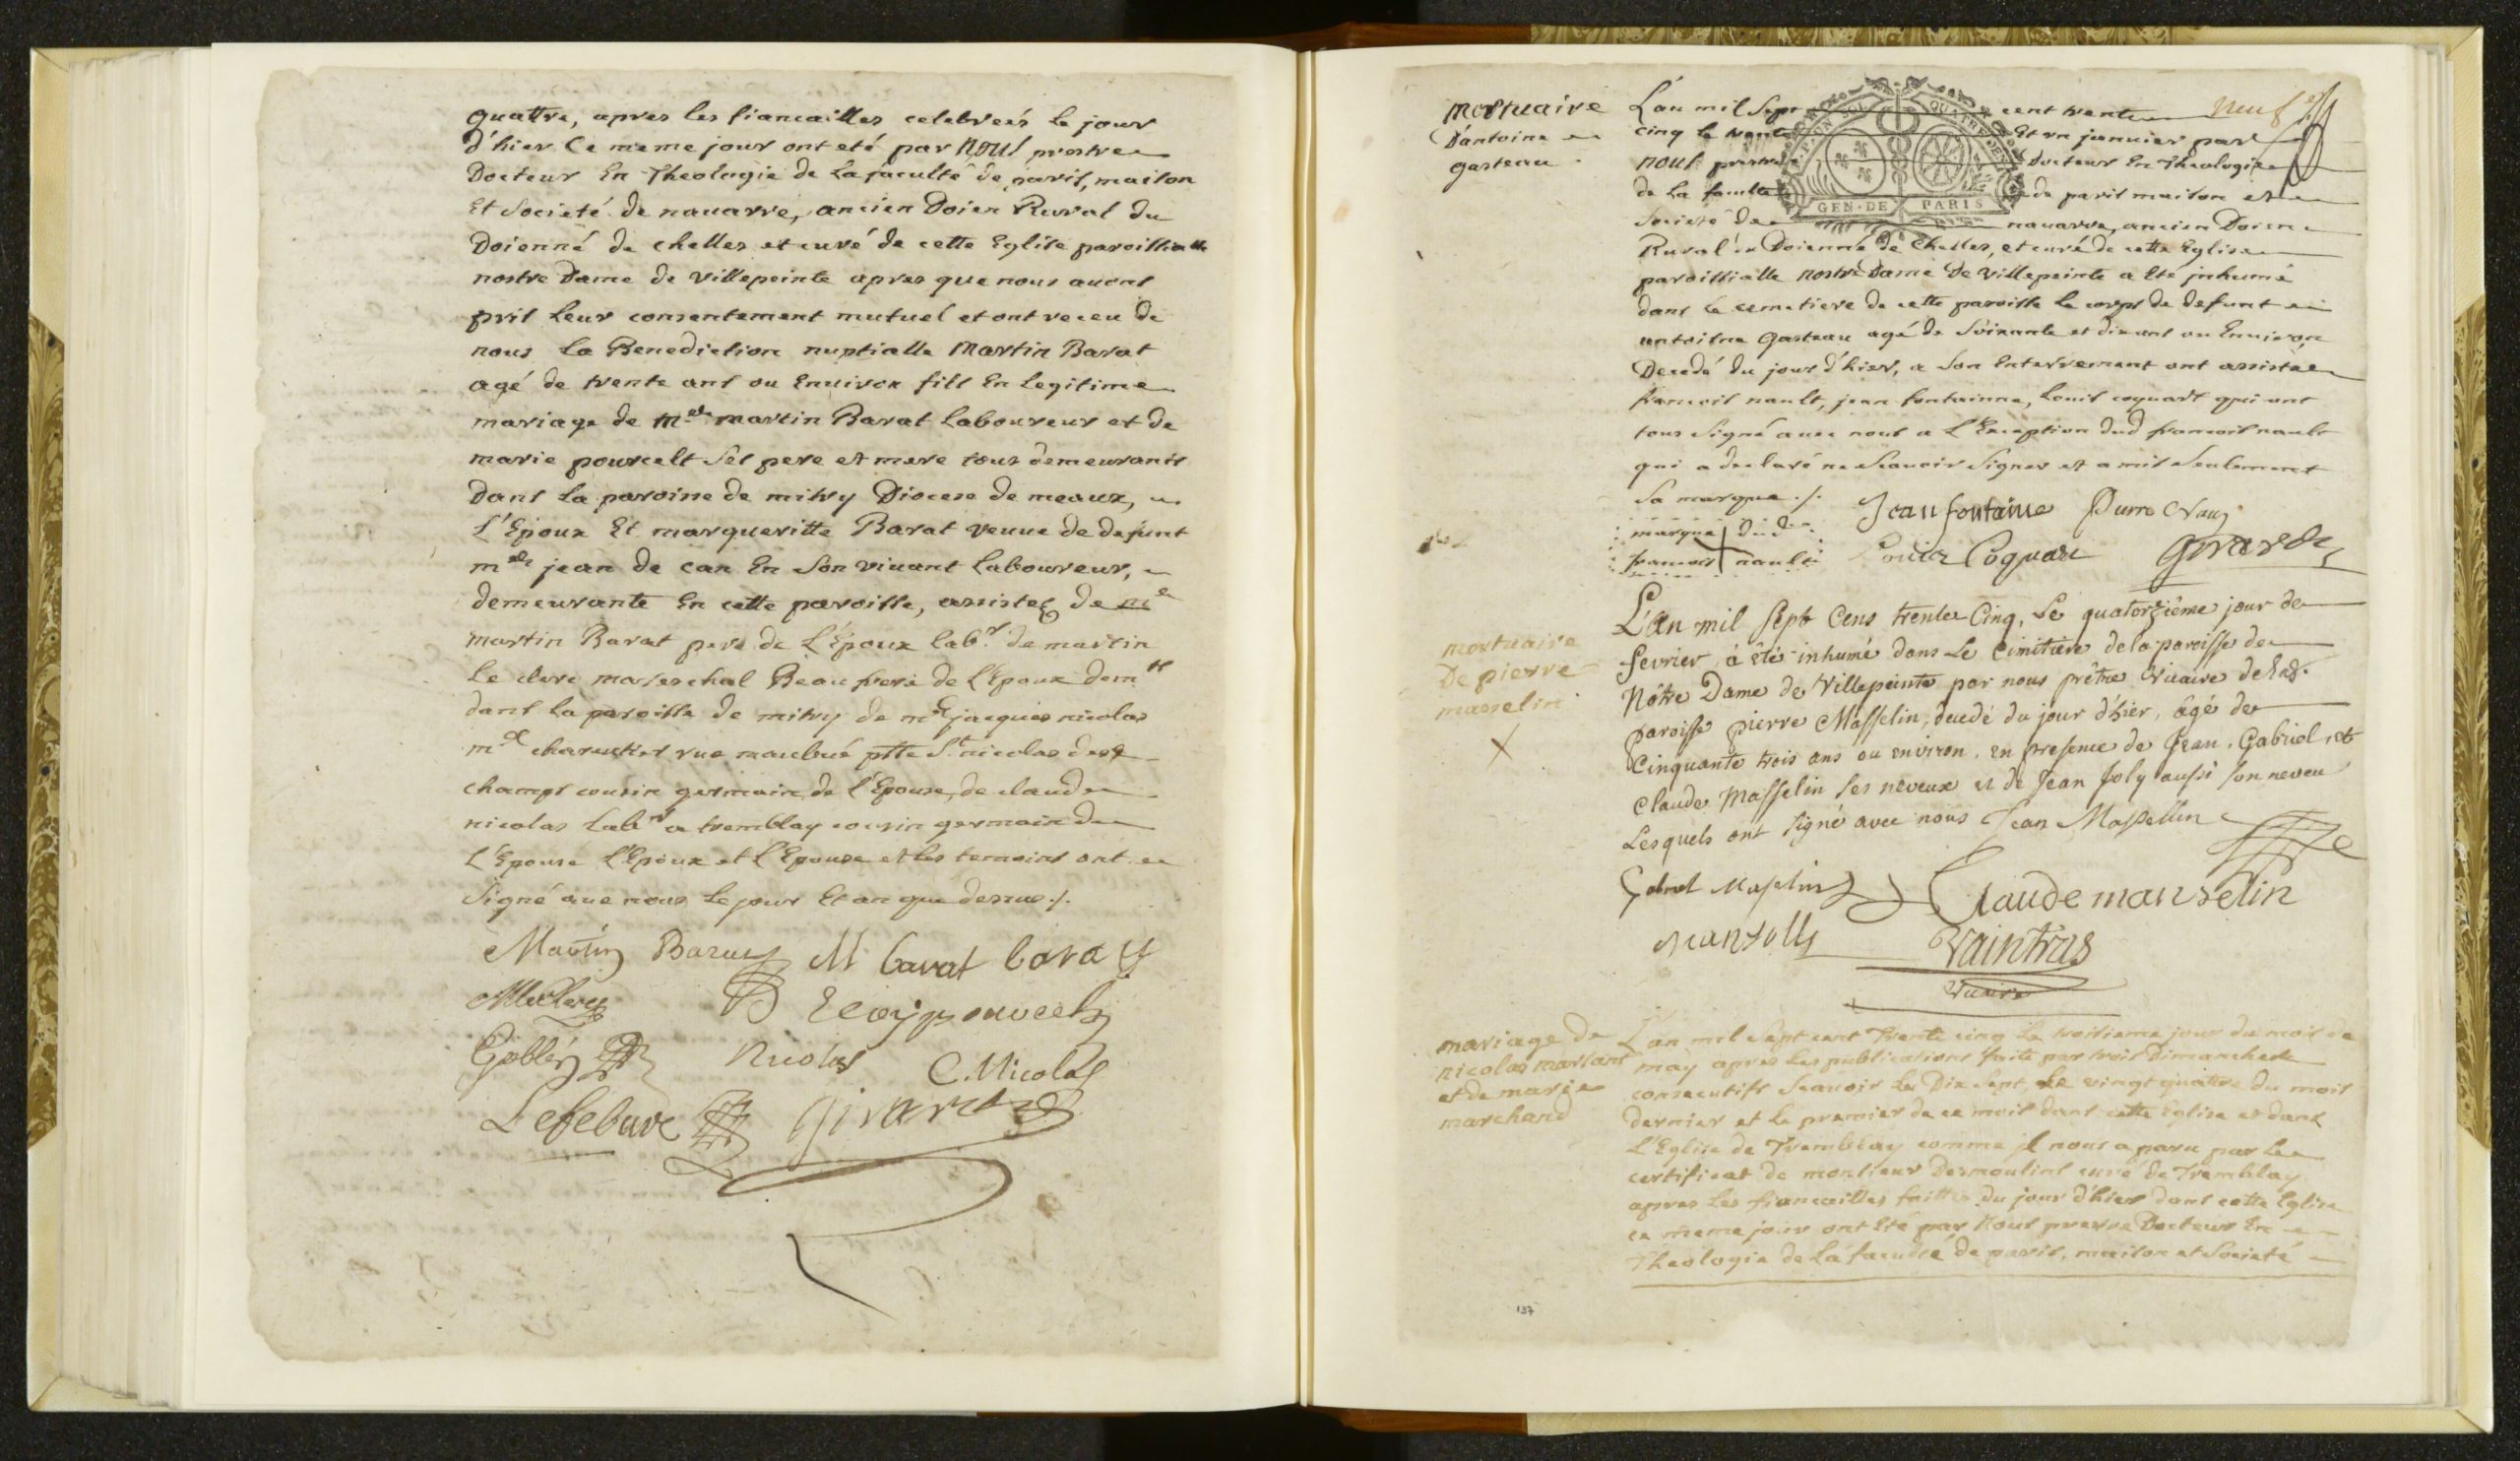 quattre, apres les fiancailles celebreés le jour
d'hier Ce meme jour ont eté par Nous prestre
Docteur En Theologie de La faculté de paris, maison
Et Societé de nauarre, ancien Doien Rural du
Doienné de chelles et curé de cette Eglise paroissialle
nostre Dame de Villepeinte apres que nous auons
pris Leur consentement mutuel et ont receu de
nous La Benediction nuptialle Martin Barat
agé de trente ans ou Enuiron fils En Legitime
mariage de m.de martin Barat Laboureur et de
marie pourcelt Ses pere et mere tous demeurants
Dans La paroisse de mitry Diocese de meaux,
L'Epoux Et margueritte Barat veuue de defunt
mde jean de can En Son viuant Laboureur,
demeurante En cette paroisse, assistez de me
martin Barat pere de L'Epoux labr. de martin
Le clerc mareschal Beaufrere de l'Epoux demt
dans la paroisse de mitry de me jacques nicolas
md charcutier rue maubué psse St. nicolas des
champs cousin germain de l'Epouse, de claude
nicolas Labr a tremblay cousin germain de
L'Epouse L'Epoux et L'Epouse et les temoins ont
Signé auec nous Le jour Et an que dessus ./.
Martin Barat M barat bara
MLeClerc Eloy pourcelt
Gobley Nicolas C. Nicolas
Lefebure Girard
mortuaire
D'antoine
gasteau
L'an mil Sept cent trente neuf
cinq le trente Et un januier par
nous prestre Docteur En Theologie
de La faculté de paris maison et
Societé de nauarre, ancien Doien
GEN · DE PARIS
Rural du Doienné de Chelles, et curé de cette Eglise
paroissialle nostre Dame de Villepeinte a Eté jnhumé
dans Le cemetiere de cette paroisse Le corps de defunt
antoine Gasteau agé de Soixante et dix ans ou Enuiron
Decedé du jour d'hier, a Son Enterrement ont assistee
francois nault, jean fontainne, Louis coquart qui ont
tous Signé auec nous a L'Exception dud francois nault
qui a declaré ne Scauoir Signer et a mis Seulement
Sa marque ./. Jean fontaine
marque Dud.
francois nault Louis Coquart Girard
mortuaire
De pierre
masselin
L'an mil Sept Cens trente Cinq, Le quatorziéme jour de
fevrier, á été inhumé dans Le Cimitiere de la paroisse de
Nôtre Dame de Villepeinte par nous prêtre Vicaire de lad.
paroisse pierre Masselin, decedé du jour d'hier, âgé de
Cinquante trois ans ou environ, en presence de Jean, Gabriel, et
Claude Masselin ses neveux et de Jean Joly aussi son neveu
Lesquels ont signé avec nous Jean Massellin
Gabriel Masselin Claude manselin
Jean Jolly Vaintras
Vicaire
mariage de
nicolas marsant
et de marie
marchand
L'an mil Sept cent trente cinq Le troisieme jour du mois de
may apres Les publications faite par trois Dimanches
consecutifs Scauoir Le Dix Sept, Le vingt quattre du mois
dernier et Le premier de ce mois dans cette Eglise et dans
L'Eglise de Tremblay comme jl nous a paru par Le
certificat de monsieur Desmoulins curé de Tremblay
apres Les fiancailles faittes du jour d'hier dans cette Eglise
ce meme jour ont Eté par Nous prestre Docteur En
Theologie de La faculté de paris, maison et Societé
137